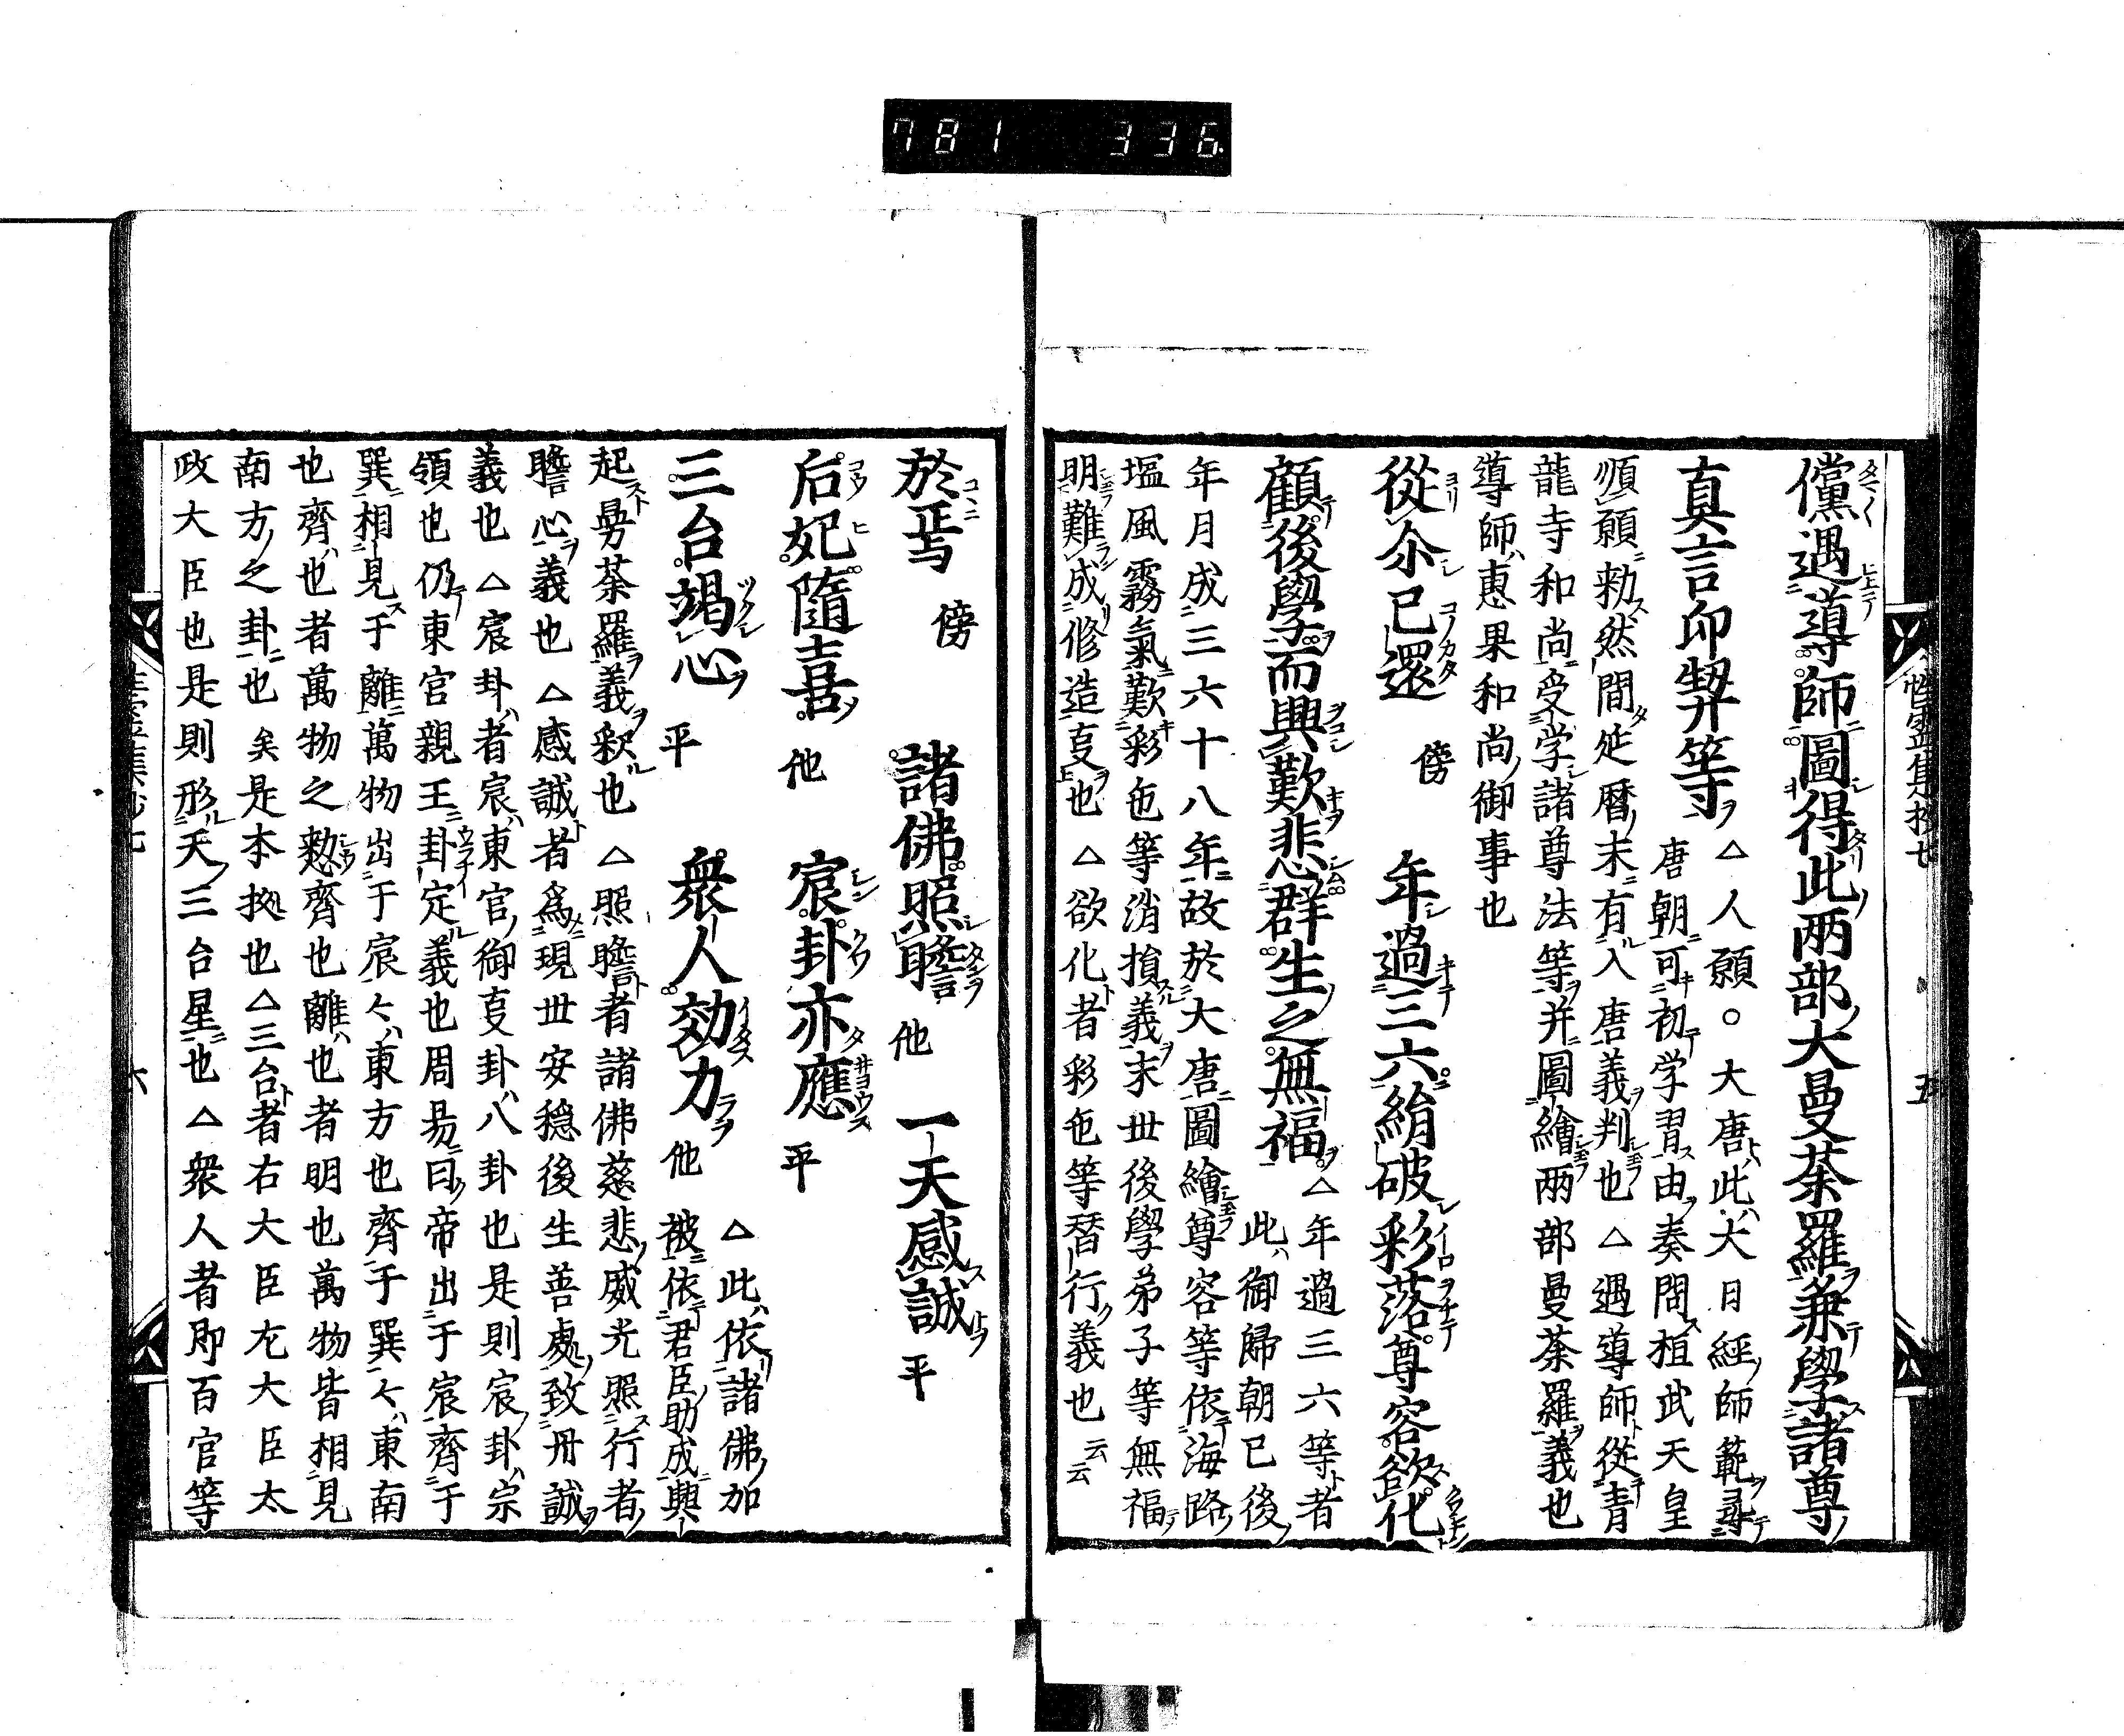 781 336
性靈集抄七 五
儻遇導師圖得此両部大曼荼羅兼學諸尊
真言印契等 △人願。大唐此大日經師範尋
唐朝可初学習由奏問桓武天皇
順願勅然間延暦末有入唐義判也△遇導師從青
龍寺和尚受学諸尊法等并圖繪両部曼荼羅義也
導師惠果和尚御事也
從尒已還 傍 年過三六絹破彩落尊容欲化
顧後學而興歎悲群生之無福 △年過三六等者
此御歸朝已後
年月成三六十八年故於大唐圖繪尊容等依海路
塩風霧氣歎彩色等消損義末世後學弟子等無福
明難成修造叓也△欲化者彩色等替行義也云云
於焉 傍 諸佛照瞻 他 一天感誠 平
后妃隨喜 他 宸卦亦應 平
三台竭心 平 衆人効力 他 △此依諸佛加
被依君臣助成興
起曼荼羅義釈也△照瞻者諸佛慈悲威光照行者
瞻心義也△感誠者爲現世安穏後生善處致丹誠
義也△宸卦者宸東宮御叓卦八卦也是則宸卦宗
領也仍東宮親王卦定義也周易曰帝出于宸齊于
巽相見于離萬物出于宸々東方也齊于巽々東南
也齊也者萬物之㓗齊也離也者明也萬物皆相見
南方之卦也矣是本拠也△三台者右大臣左大臣太
政大臣也是則形天三台星也△衆人者即百官等
性靈集抄七 六